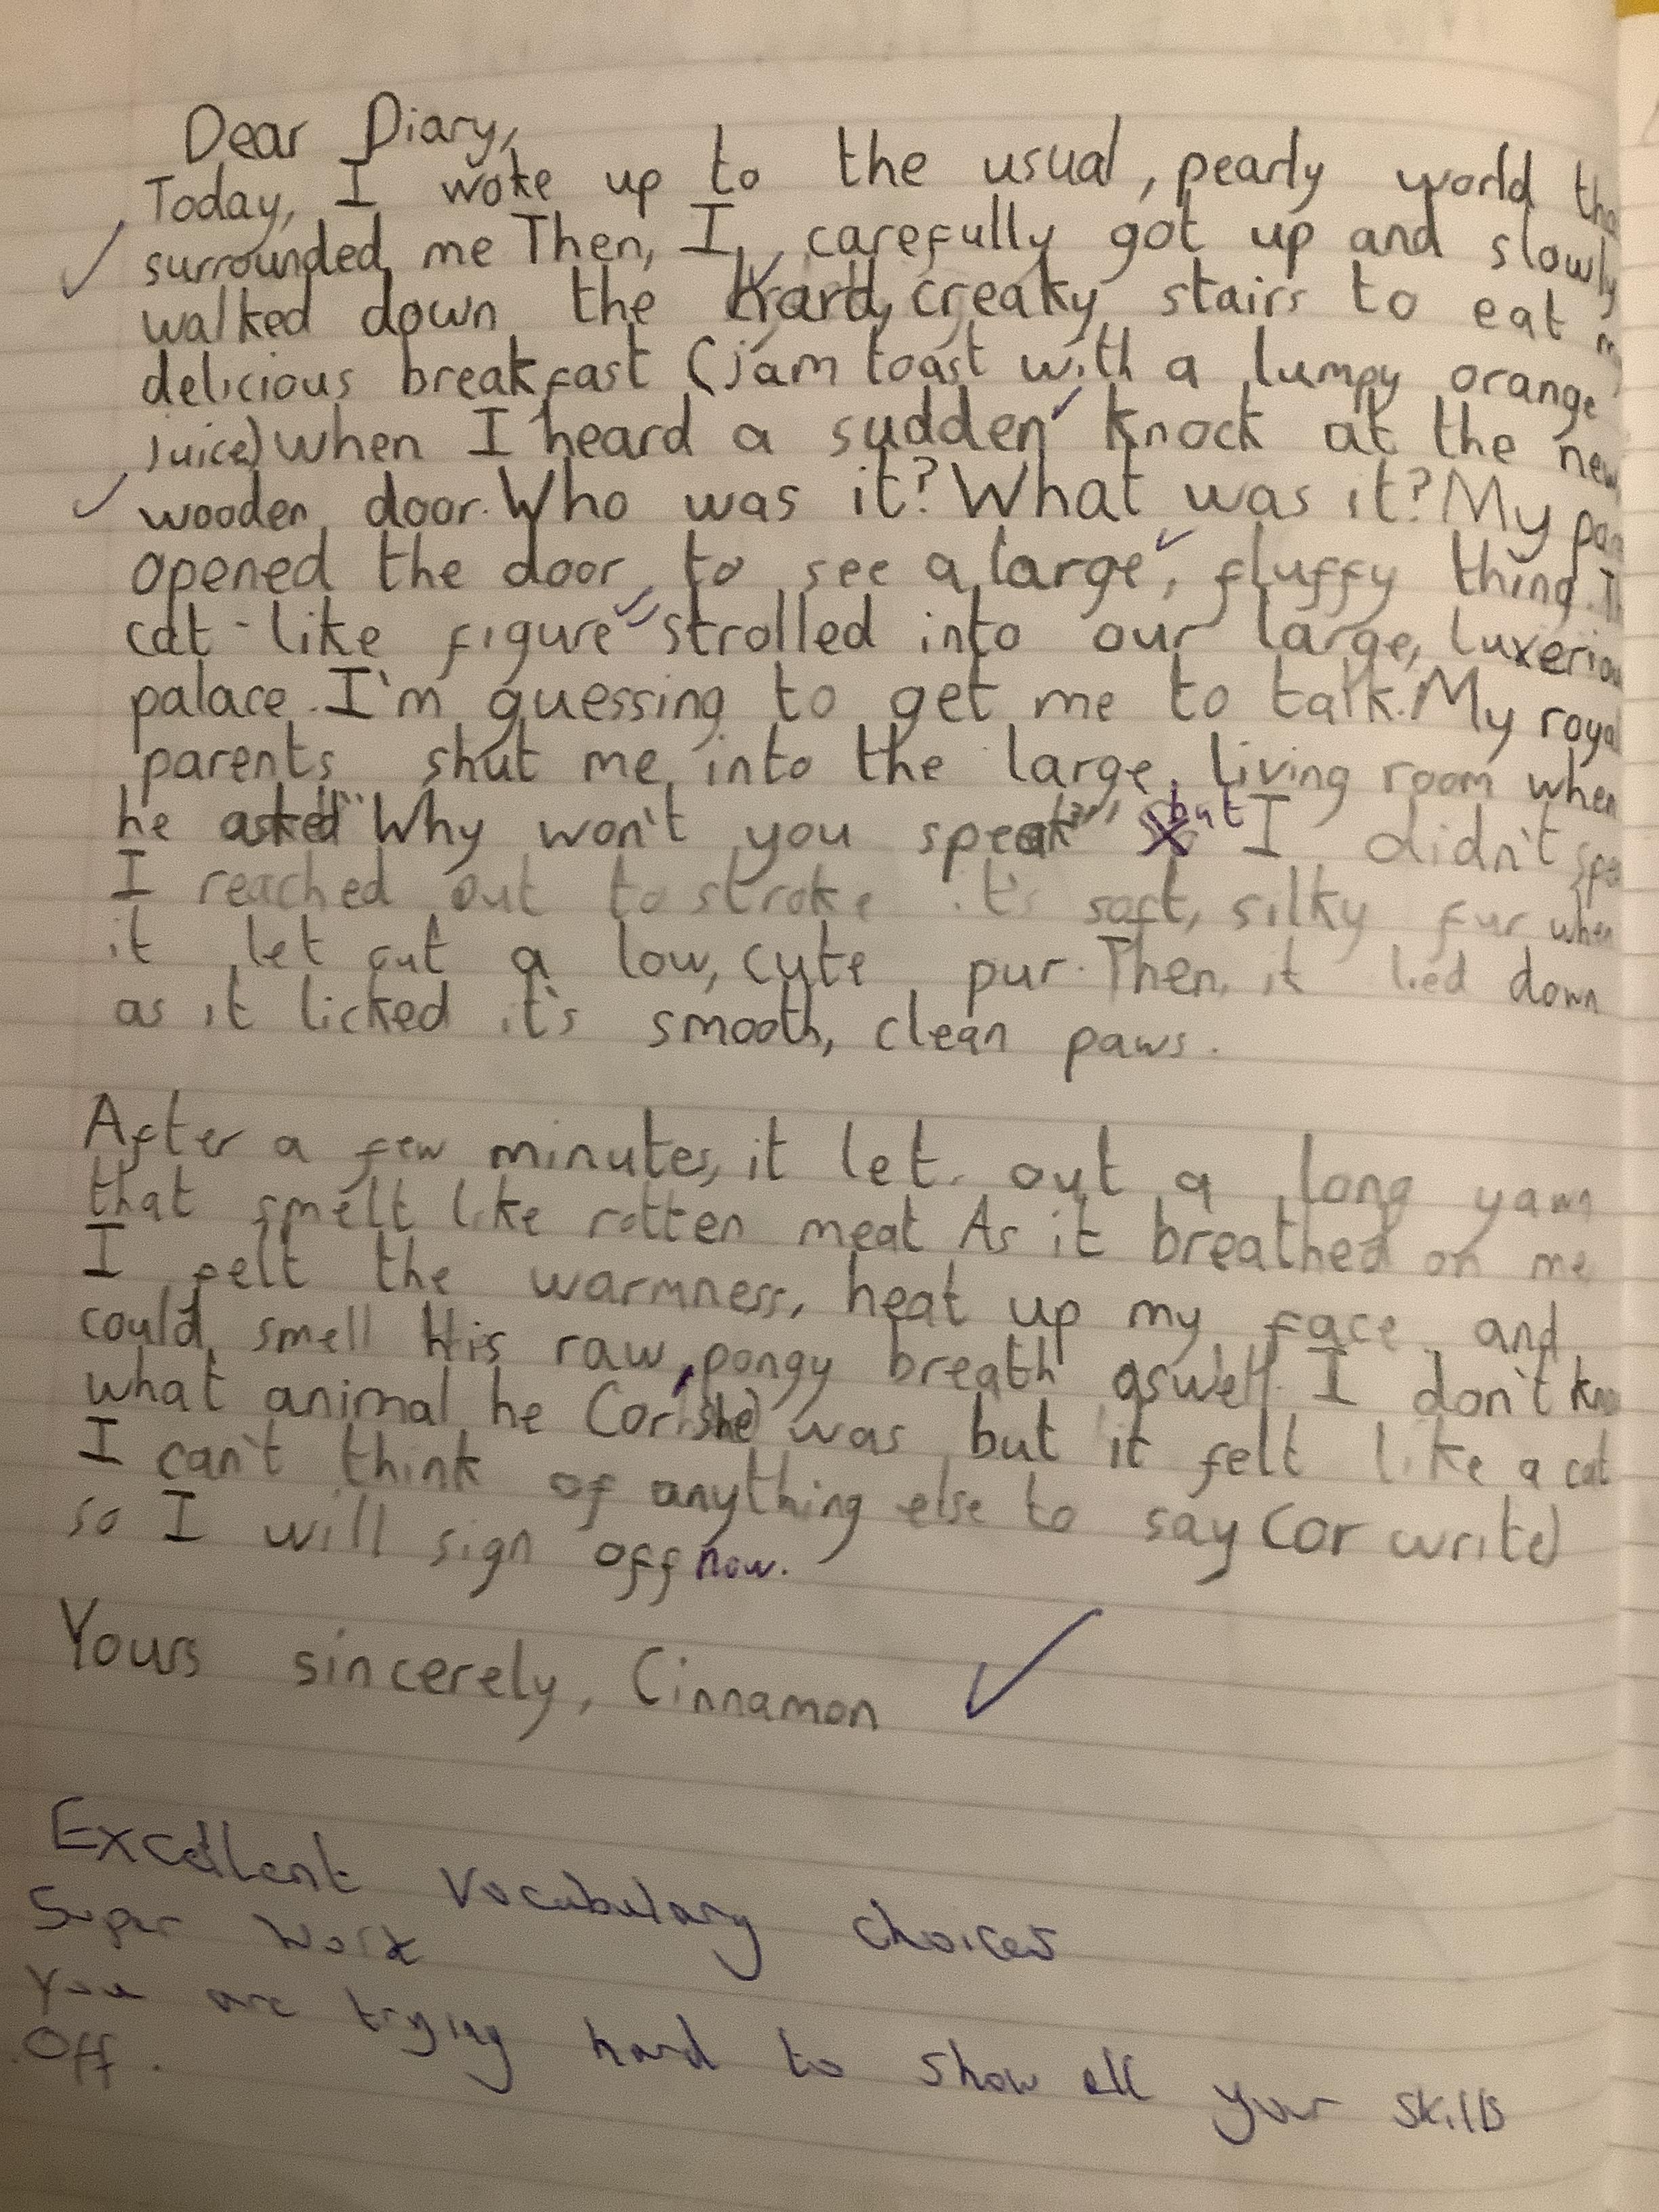 Dear Diary,
Today, I woke up to the usual, pearly world tha
surrounded me Then, I, carefully got up and slowly
walked down the hard, creaky stairs to eat m
delicious breakfast (jam toast with a lumpy orange
juice) when I heard a sudden knock at the new
wooden door. Who was it? What was it? My par
opened the door, to see a large, fluffy thing. Th
cat-like figure strolled into our large, luxeriou
palace. I'm guessing to get me to talk. My royal
parents shut me into the large, living room when
he asked "Why won't you speak?" but I didn't spea
I reached out to stroke it's soft, silky fur when
it let out a low, cute pur. Then, it lied down
as it licked it's smooth, clean paws.
After a few minutes, it let out a long yawn
that smelt like rotten meat As it breathed on me
I felt the warmness, heat up my face and
could smell His raw, pongy breath aswell. I don't kno
what animal he (or she) was but it felt like a cat
I can't think of anything else to say (or write)
so I will sign off now.
Yours sincerely, Cinnamon
Excellent vocabulary choices
Super work
You are trying hard to show all your skills
off.